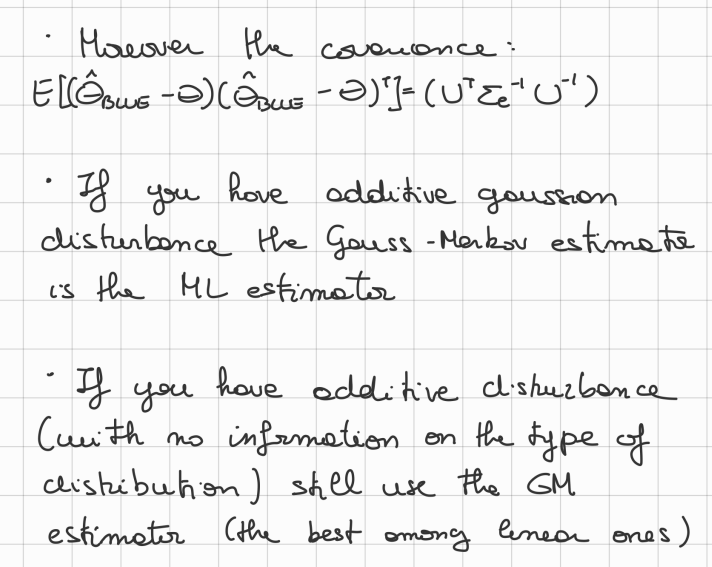 · Moreover the covariance:
E[(Θ̂_BLUE - Θ)(Θ̂_BLUE - Θ)ᵀ] = (Uᵀ Σₑ⁻¹ U⁻¹)
· If you have additive gaussian
disturbance the Gauss-Markov estimate
is the ML estimator
· If you have additive disturbance
(with no infrmation on the type of
distribution) still use the GM
estimator (the best among linear ones)